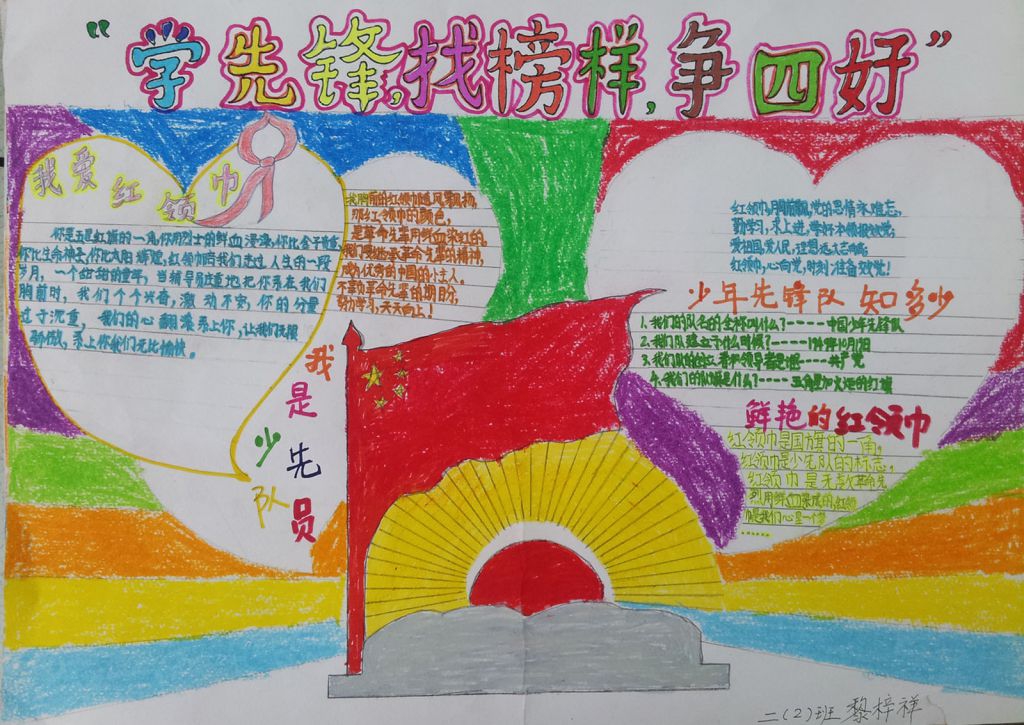 “学先锋,找榜样,争四好”
我爱红领巾
你是五星红旗的一角,你用烈士的鲜血浸染,你比金子贵重,
你比生命神圣,你比太阳辉煌,红领巾陪我们走过人生的一段
岁月,一个红甜的童年,当辅导员庄重地把你系在我们
胸前时,我们个个兴奋,激动不安,你的分量
过于沉重,我们的心翻滚系上你,让我们无限
骄傲,系上你我们无比愉快。
我胸前的红领巾随风飘扬,
那红领巾的颜色,
是革命先辈用鲜血染红的,
我们要继承革命先辈的精神,
成为优秀的中国的小主人。
不辜负革命先辈的期盼,
努力学习,天天向上!
我是少先队员
红领巾,胸前飘,党的恩情永难忘,
勤学习,求上进,学好本领报效党;
爱祖国,爱人民,理想远大志气高;
红领巾,心向党,时刻准备效党!
少年先锋队知多少
1、我们的队名的全称叫什么?-----中国少年先锋队
2、我们队建立于什么时候?----1949年10月13日
3、我们队的创立者和领导者是谁----共产党
4、我们的队旗是什么?----五角星加火炬的红旗
鲜艳的红领巾
红领巾是国旗的一角,
红领巾是少先队的标志,
红领巾是无数革命先
烈用鲜血染成的,红领
巾是我们心里一个
......
二(2)班 黎梓祥